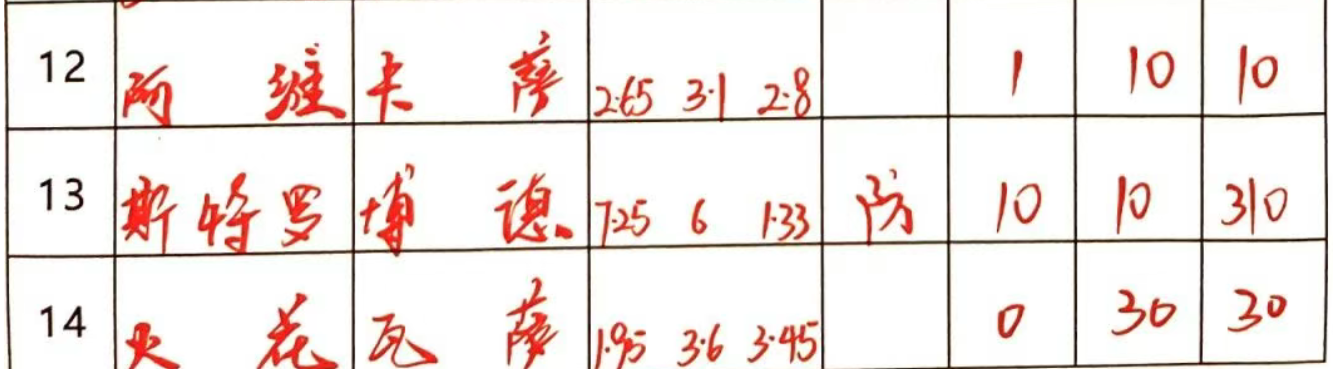 12 阿维 卡萨 2.65 3.1 2.8 1 10 10
13 斯特罗 博德 7.25 6 1.33 防 10 10 310
14 火花 瓦萨 1.95 3.6 3.45 0 30 30